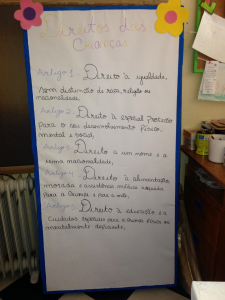 Direitos das
Criança
Artigo 1 - Direito à igualdade,
sem distinção de raça, religião ou
nacionalidade.
Artigo 2 - Direito à especial proteção
para o seu desenvolvimento físico,
mental e social,
Artigo 3 - Direito a um nome e a
uma nacionalidade,
Artigo 4 - Direito à alimentação
moradia e assistência médica
para a criança e para a mãe,
Artigo 5 - Direito à educação e a
cuidados especiais para a criança física ou
mentalmente deficiente,